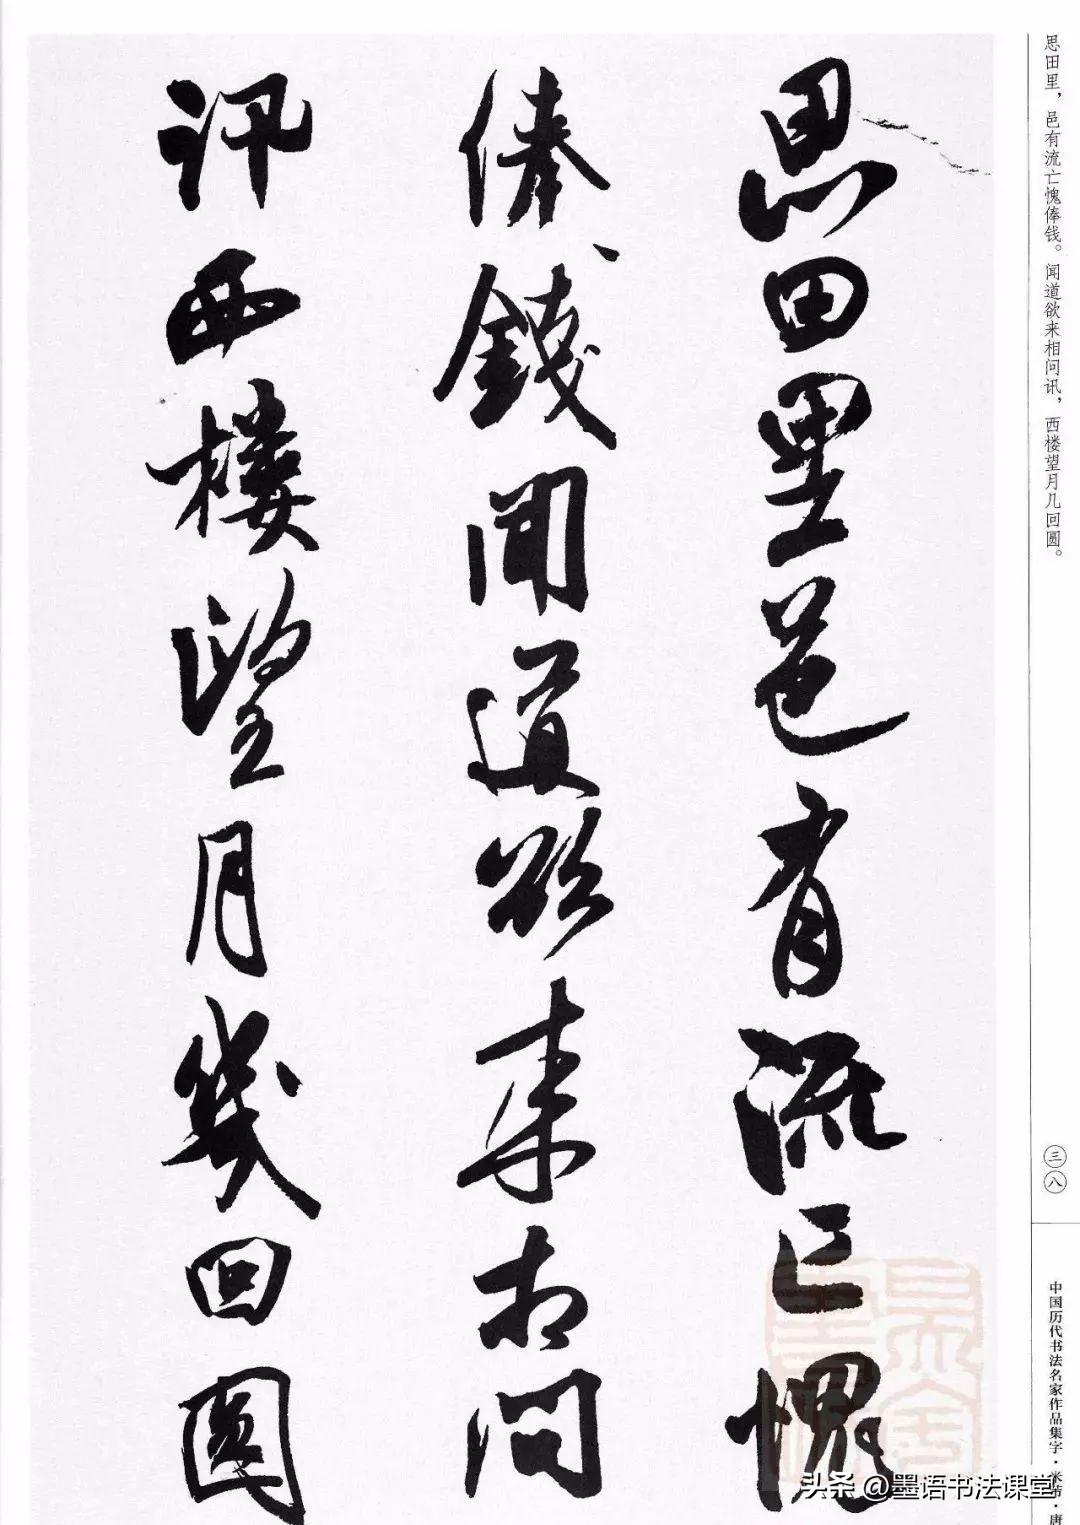 思田里，邑有流亡愧俸钱。闻道欲来相问讯，西楼望月几回圆。
思田里邑有流亡愧
俸錢聞道欲来相問
訊西樓望月幾回圓
三八
中国历代书法名家作品集字·米芾·唐
头条 @墨语书法课堂